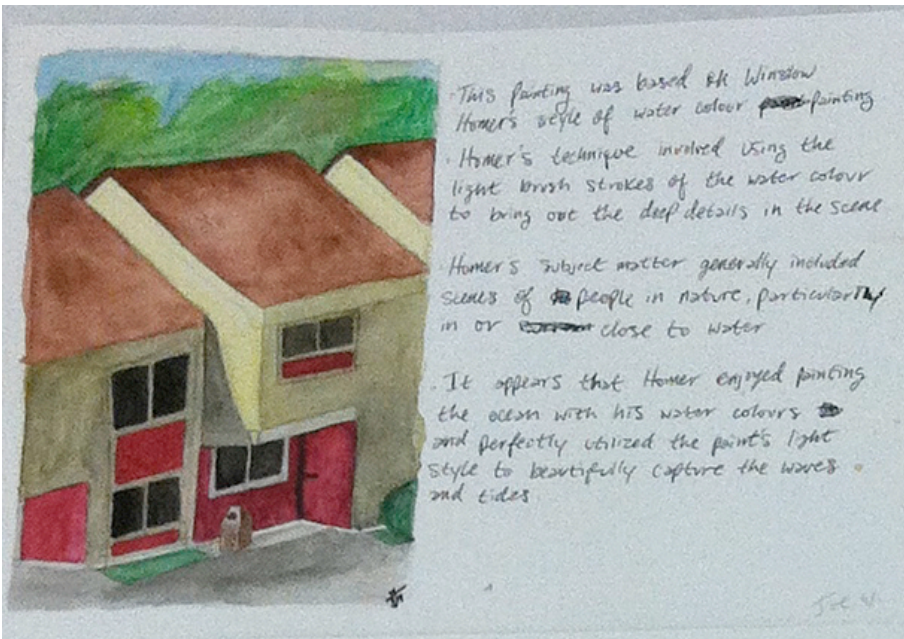 · This painting was based on Winslow
Homer's style of water colour painting
· Homer's technique involved using the
light brush strokes of the water colour
to bring out the deep details in the scene
· Homer's subject matter generally included
scenes of people in nature, particularly
in or close to water
· It appears that Homer enjoyed painting
the ocean with his water colours
and perfectly utilized the paint's light
style to beautifully capture the waves
and tides